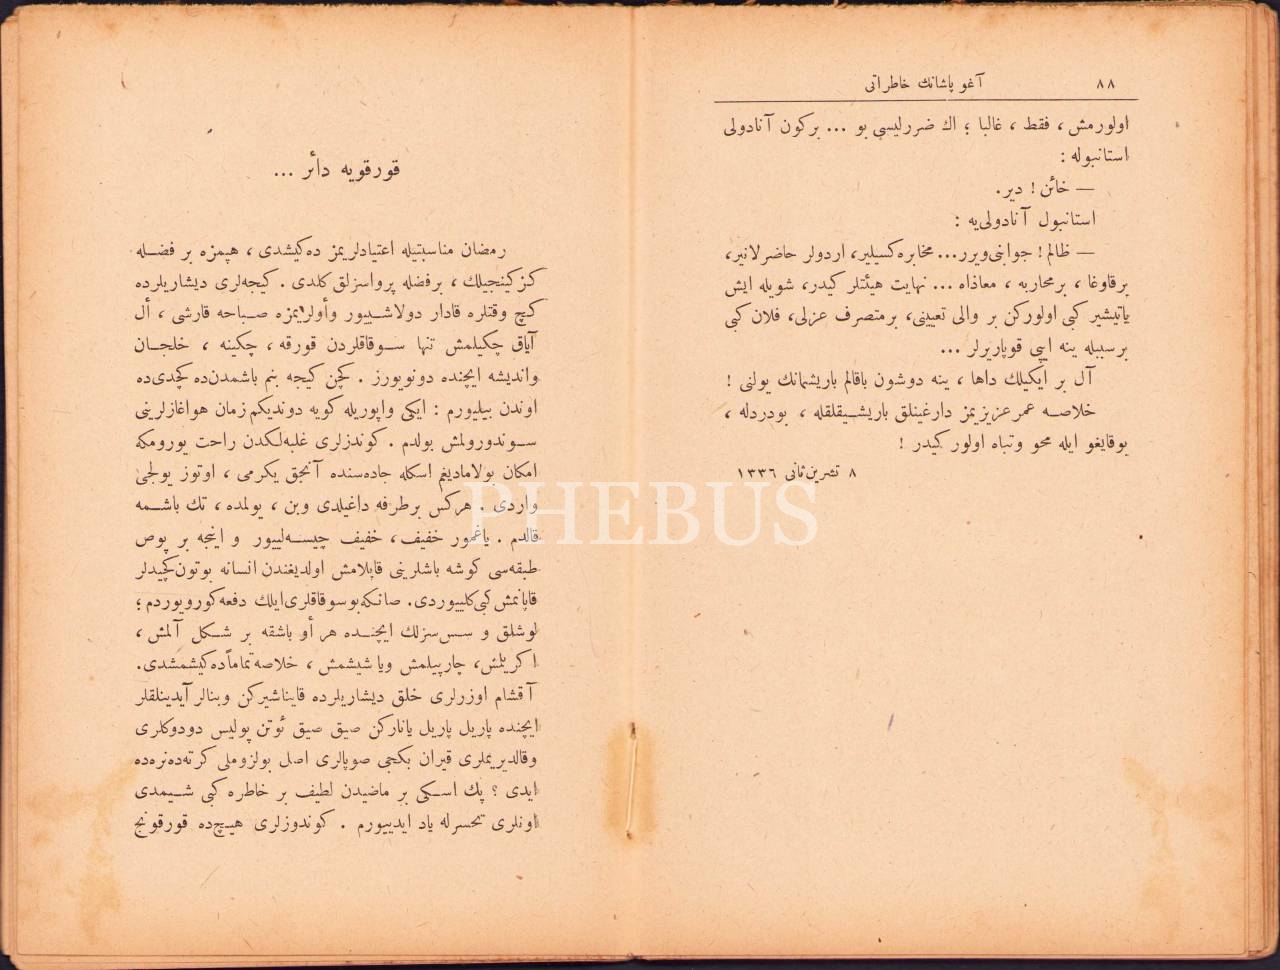 ٨٨
آغو پاشانك خاطراتى
اولورمش ، فقط ، غالبا ؛ اك ضررليسى بو ... بركون آنادولى
استانبوله :
— خائن ! دير.
استانبول آنادولى‌يه :
— ظالم ! جوابنى ويرر... مخابره كسيلير، اردولر حاضرلانير،
برقاوغا ، برمحاربه ، معاذاه ... نهايت هيئتلر كيدر، شويله ايش
ياتيشير كبى اولوركن بر والى تعيينى، برمتصرف عزلى، فلان كبى
برسببله ينه ايپى قوپاريرلر ...
آل بر ايكيلك داها ، ينه دوشون باقالم باريشمانك يولنى !
خلاصه عمر عزيزيمز دارغينلق باريشيقلقله ، بودردله ،
بوقايغو ايله محو وتباه اولور كيدر !
٨ تشرين ثانى ١٣٣٦
قورقويه دائر ...
رمضان مناسبتيله اعتيادلريمز ده‌كيشدى ، هپمزه بر فضله
كزكينجيلك ، برفضله پرواسزلق كلدى . كيجه‌لرى ديشاريلرده
كچ وقتلره قادار دولاشييور وأولريمزه صباحه قارشى ، أل
آياق چكيلمش تنها سوقاقلردن قورقه ، چكينه ، خلجان
وانديشه ايچنده دونويورز . كچن كيجه بنم باشمدن‌ده كچدى‌ده
اوندن بيليورم : ايكى واپوريله كويه دونديكم زمان هواغازلرينى
سوندورولمش بولدم . كوندزلرى غلبه‌لكدن راحت يورومكه
امكان بولاماديغم اسكله جاده‌سنده آنجق يكرمى ، اوتوز يولجى
واردى . هركس برطرفه داغيلدى وبن ، يولمده ، تك باشمه
قالدم . ياغمور خفيف ، خفيف چيسه‌لييور و اينجه بر پوص
طبقه‌سى كوشه باشلرينى قاپلامش اولديغندن انسانه بوتون كچيدلر
قاپانمش كبى كلييوردى. صانكه بوسوقاقلرى ايلك دفعه كورويوردم ؛
لوشلق و سس‌سزلك ايچنده هر أو باشقه بر شكل آلمش ،
اكريلمش، چارپيلمش وياشيشمش ، خلاصه تماماً ده‌كيشمشدى.
آقشام اوزرلرى خلق ديشاريلرده قايناشيركن وبنالر آيدينلقلر
ايچنده پاريل پاريل ياناركن صيق صيق ئوتن پوليس دودوكلرى
وقالديريملرى قيران بكجى صوپالرى اصل بولزوملى كرته‌ده‌نره‌ده
ايدى ؟ پك اسكى بر ماضيدن لطيف بر خاطره كبى شيمدى
اونلرى تحسرله ياد ايدييورم . كوندوزلرى هيچ‌ده قورقونج
PHEBUS